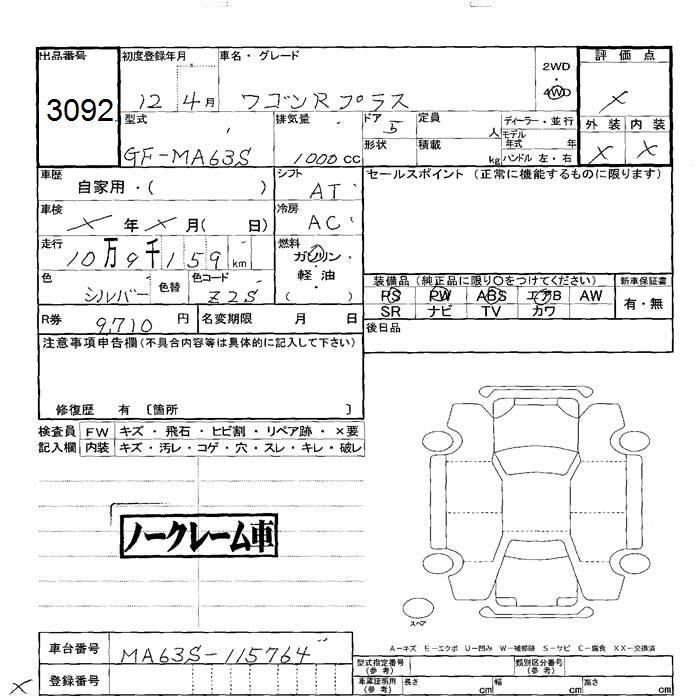 出品番号 初度登録年月 車名・グレード 2WD ・ 4WD 評価点
3092 12 4月 ワゴンRプラス ×
型式 排気量 ドア 5 定員 人 ディーラー・並行 外装 内装
GF-MA63S 1000cc 形状 積載 kg モデル年式 年 ハンドル 左・右 × ×
車歴 自家用・( ) シフト AT セールスポイント (正常に機能するものに限ります)
車検 × 年 × 月( 日) 冷房 AC
走行 10万9千159km 燃料 ガソリン・軽油 ( )
色 シルバー 色替 色コード Z2S
装備品 (純正品に限り〇をつけてください) 新車保証書
PS PW ABS エアB AW 有・無
SR ナビ TV カワ
R券 9,710円 名変期限 月 日 後日品
注意事項申告欄(不具合内容等は具体的に記入して下さい)
修復歴 有 〔箇所 〕
検査員 FW キズ・飛石・ヒビ割・リペア跡・×要
記入欄 内装 キズ・汚レ・コゲ・穴・スレ・キレ・破レ
ノークレーム車
スペア
A-キズ E-エクボ U-凹み W-補修跡 S-サビ C-腐食 XX-交換済
車台番号 MA63S-115764
登録番号
型式指定番号(参考) 類別区分番号(参考)
車庫証明用(参考) 長さ cm 幅 cm 高さ cm
×